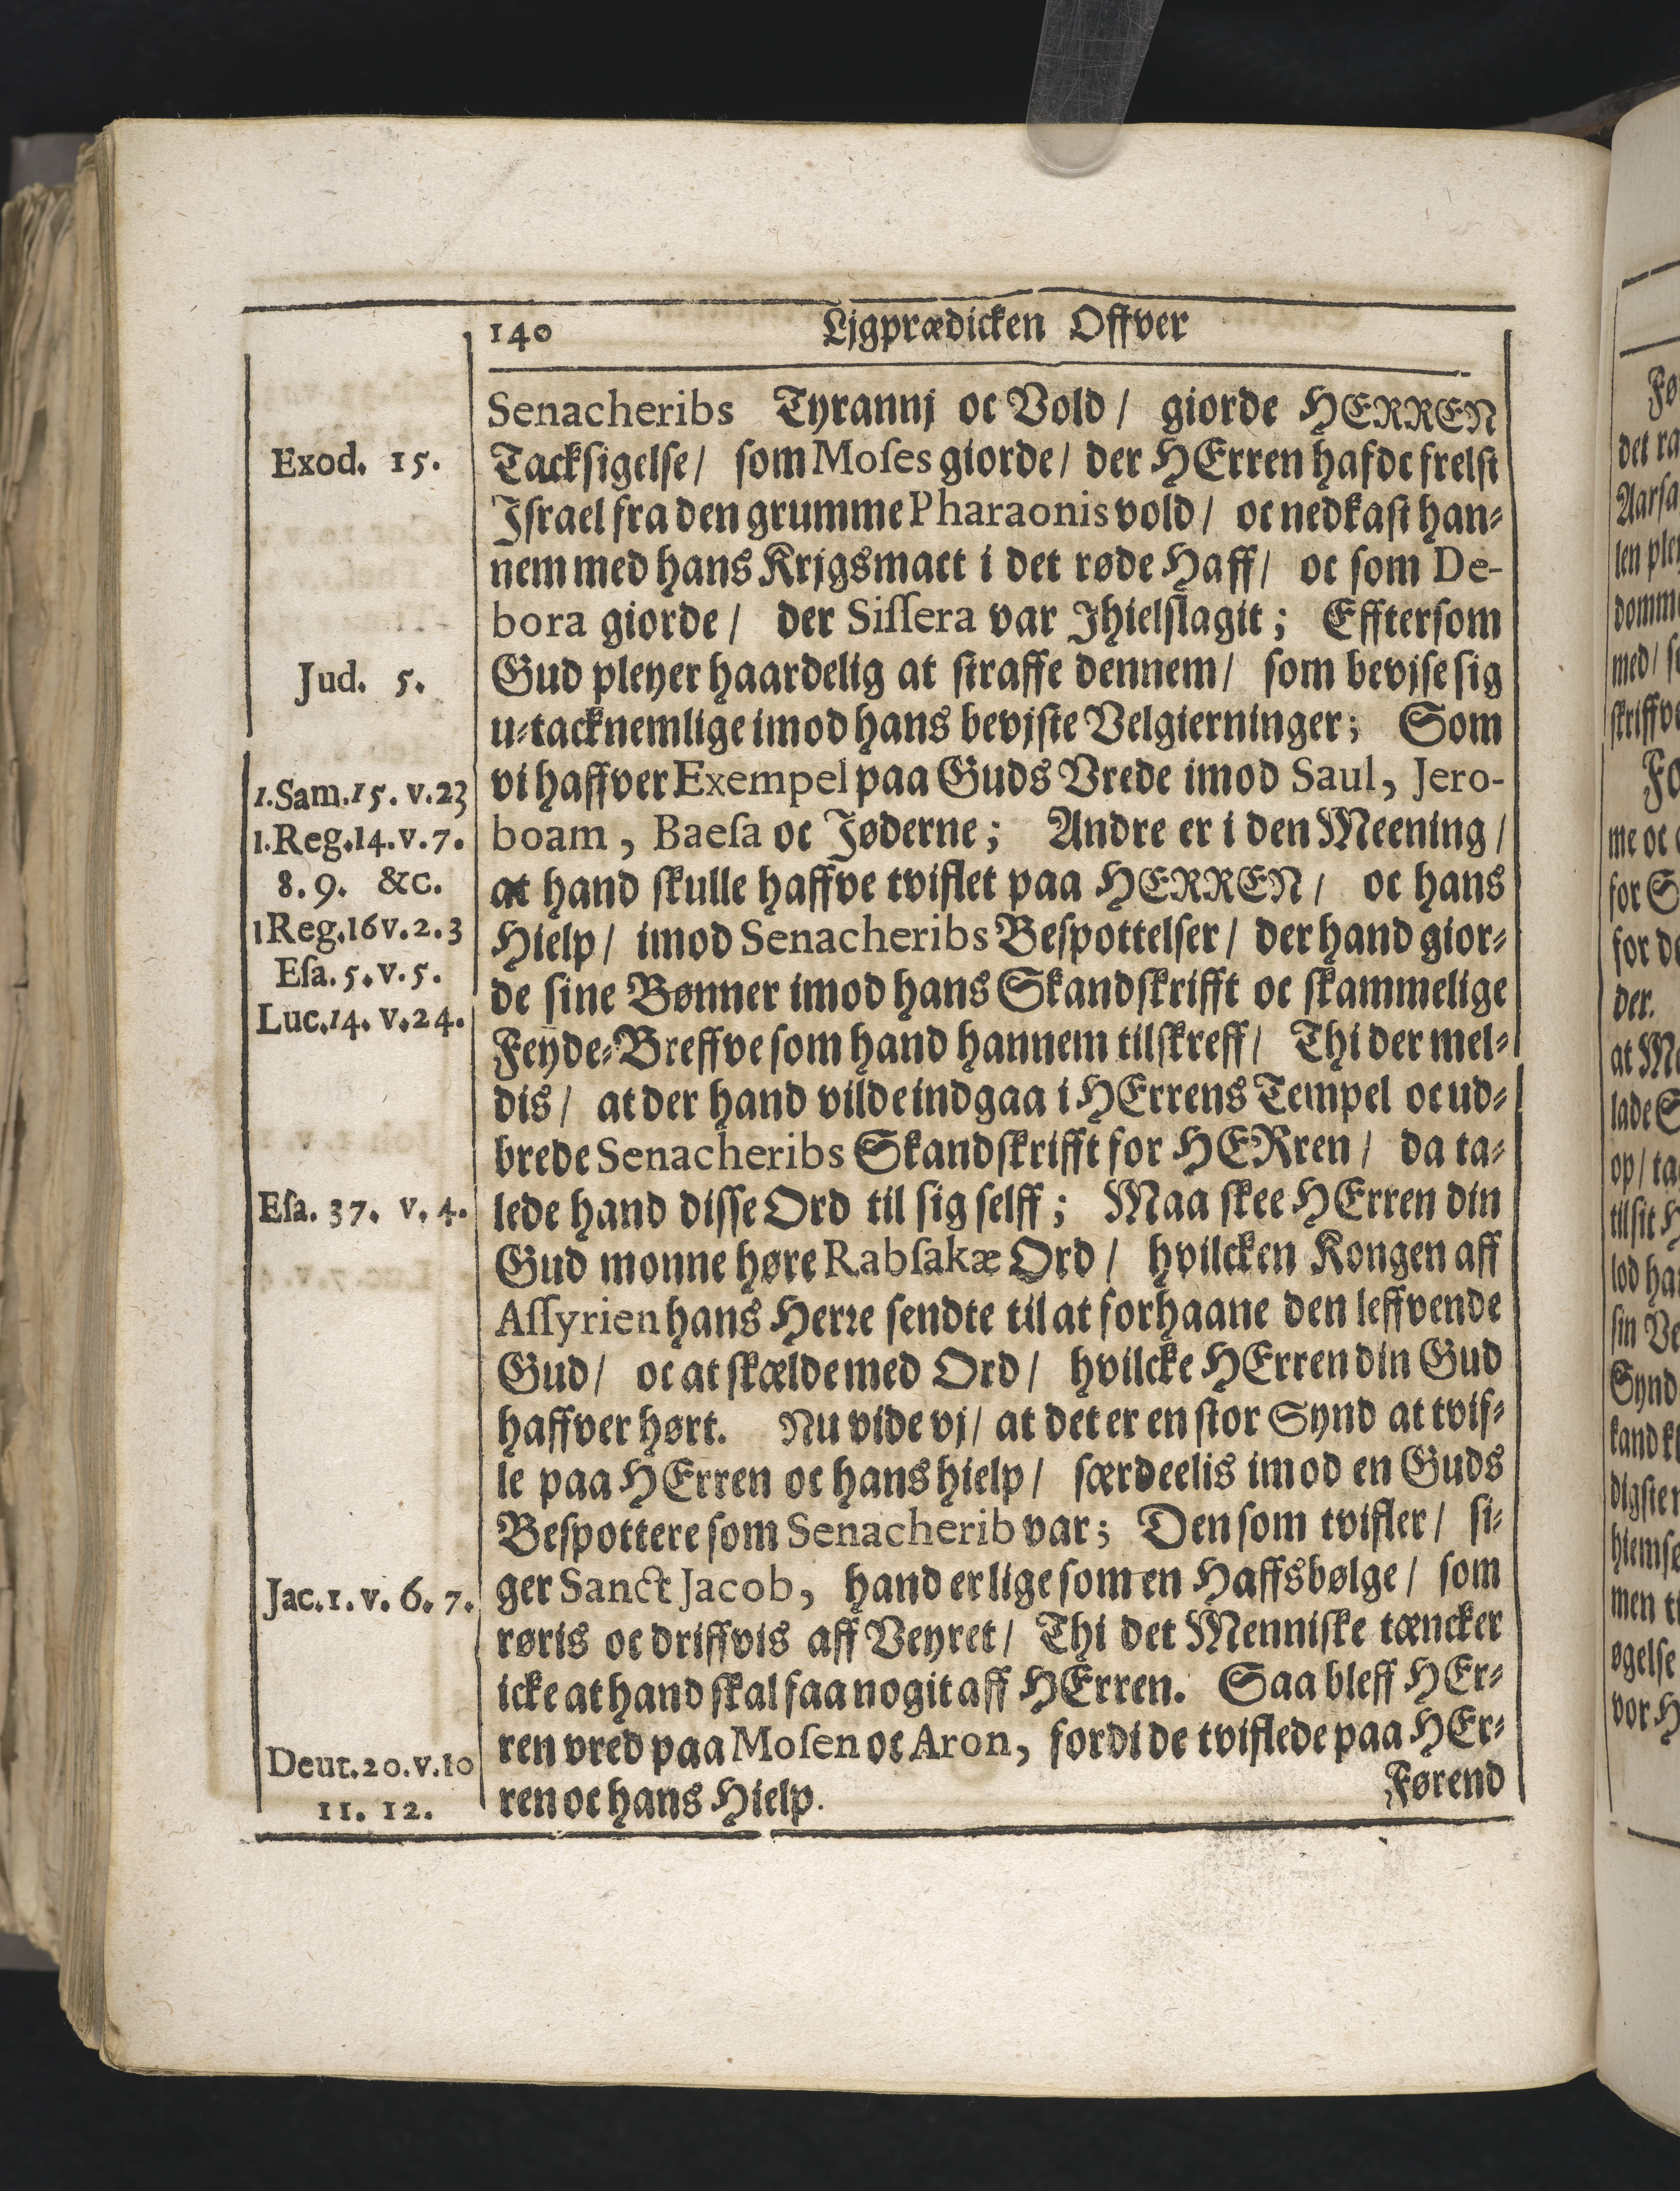 140 Ljgprædicken Offver
Senacheribs Tyrannj oc Vold / giorde HERREN
Exod. 15.
Tacksigelse / som Moſes giorde / der HErren hafde frelst
Jſrael fra den grumme Pharaonis vold / oc nedkast han⸗
nem med hans Krjgsmact i det røde Haff / oc ſom De-
bora giorde / der Siſſera var Jhielſlagit ; Effterſom
Jud. 5.
Gud pleyer haardelig at ſtraffe dennem / ſom bevjſe ſig
u⸗tacknemlige imod hans bevjſte Velgierninger ; Som
1.Sam.15. v.23
vi haffver Exempel paa Guds Vrede imod Saul, Jero-
1.Reg.14.v.7.
boam, Baeſa oc Jøderne ; Andre er i den Meening /
8. 9. &c.
at hand ſkulle haffve tviflet paa HERREN / oc hans
1Reg.16v.2.3
Hielp / imod Senacheribs Beſpottelſer / der hand gior⸗
Eſa.5.v.5.
de ſine Bønner imod hans Skandſkrifft oc ſkammelige
Luc.14. v.24.
Feyde⸗Breffve ſom hand hannem tilſkreff / Thi der mel⸗
dis / at der hand vilde indgaa i HErrens Tempel oc ud⸗
brede Senacheribs Skandſkrifft for HERren / da ta⸗
Eſa. 37. v. 4.
lede hand diſſe Ord til ſig ſelff ; Maa ſkee HErren din
Gud monne høre Rabſakæ Ord / hvilcken Kongen aff
Aſſyrien hans Herre ſendte til at forhaane den leffvende
Gud / oc at ſkælde med Ord / hvilcke HErren din Gud
haffver hørt. Nu vide vj / at det er en ſtor Synd at tvif⸗
le paa HErren oc hans hielp / ſærdeelis imod en Guds
Beſpottere ſom Senacherib var ; Den ſom tvifler / ſi⸗
Jac.1. v. 6. 7.
ger Sanct Jacob, hand er lige ſom en Haffsbølge / ſom
røris oc driffvis aff Veyret / Thi det Menniſke tæncker
icke at hand ſkal faa nogit aff HErren. Saa bleff HEr⸗
ren vred paa Moſen oc Aron, fordi de tviflede paa HEr⸗
Deut.20.v.10
ren oc hans Hielp.
11. 12.
Førend